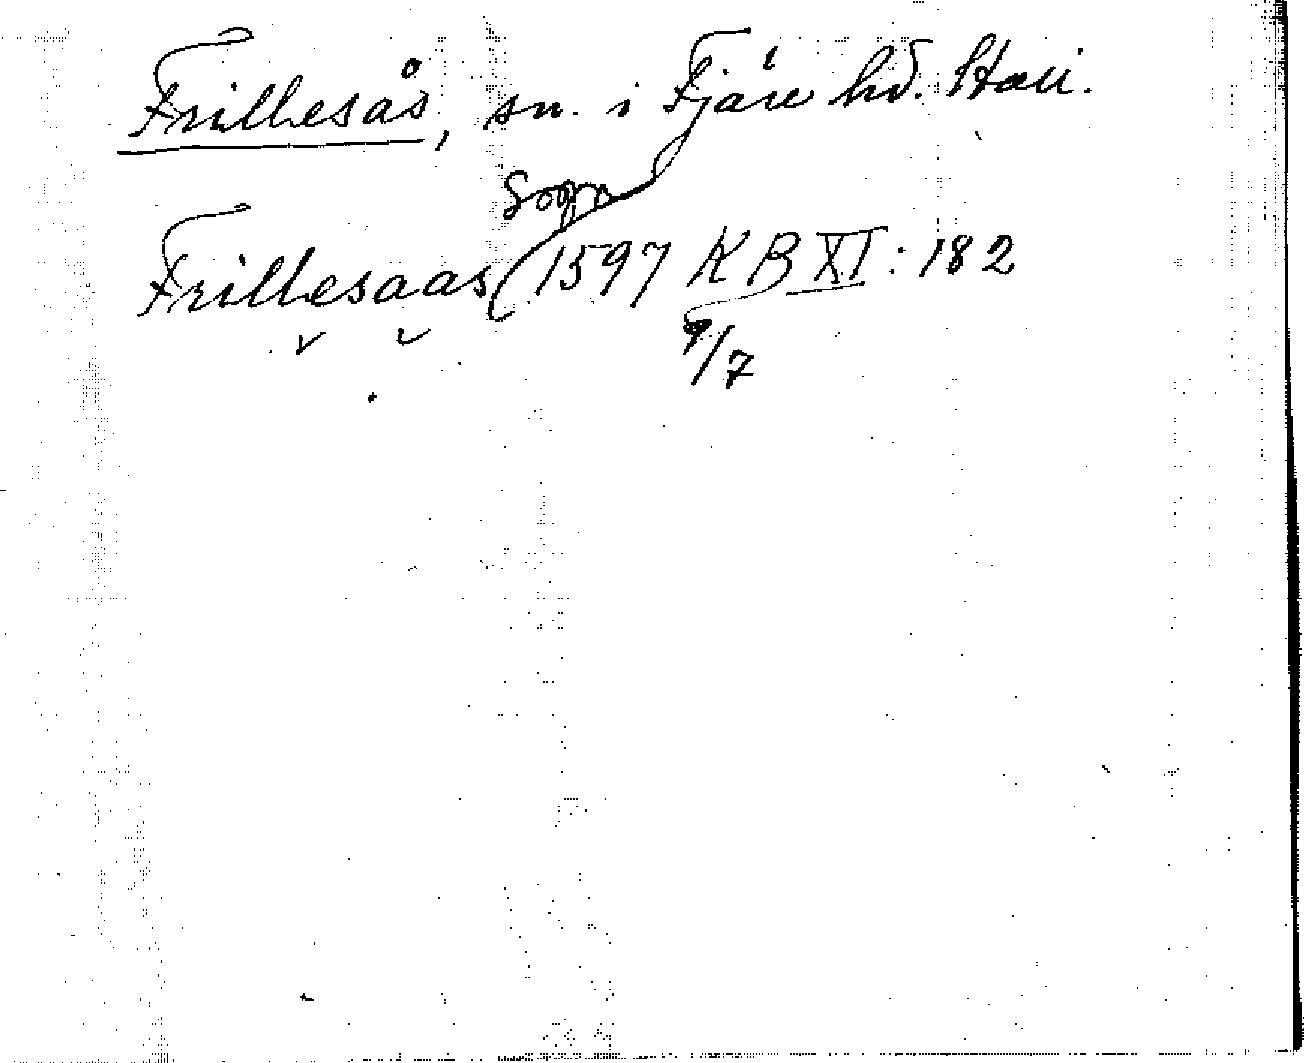 Frillesås, sn. i Fjäre hd. Hall.
Sogn
Frillesaas 1597 KB XI: 182
9/7